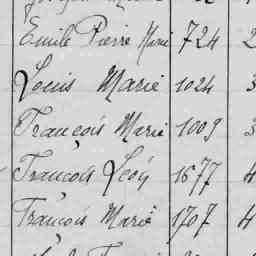 Emile Pierre Marie 724 2
Louis Marie 1024 3
François Marie 1009 3
François Léon 1677 4
François Marie 1707 4